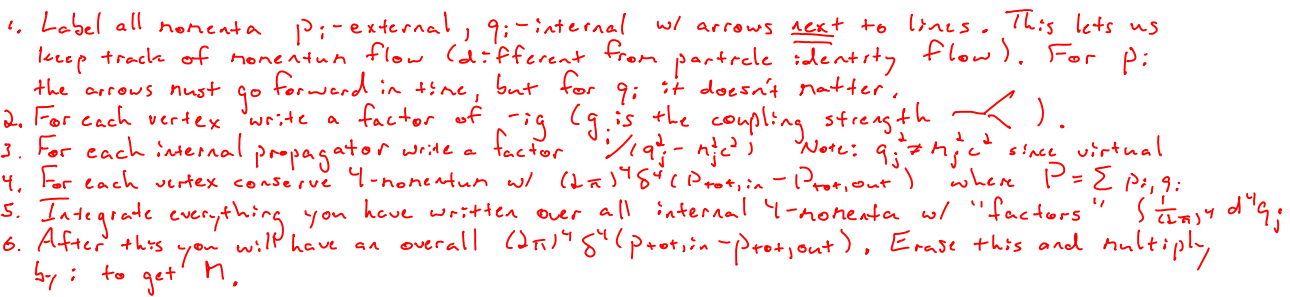 1. Label all momenta pᵢ-external, qᵢ-internal w/ arrows next to lines. This lets us
keep track of momentum flow (different from particle identity flow). For pᵢ
the arrows must go forward in time, but for qᵢ it doesn't matter.
2. For each vertex write a factor of -ig (g is the coupling strength ).
3. For each internal propagator write a factor i/(qⱼ² - mⱼ²c²) Note: qⱼ² ≠ mⱼ²c² since virtual
4. For each vertex conserve 4-momentum w/ (2π)⁴δ⁴(Ptot,in - Ptot,out) where P = Σ pᵢ, qᵢ
5. Integrate everything you have written over all internal 4-momenta w/ "factors" ∫ 1/(2π)⁴ d⁴qⱼ
6. After this you will have an overall (2π)⁴δ⁴(Ptot,in - Ptot,out). Erase this and multiply
by i to get M.